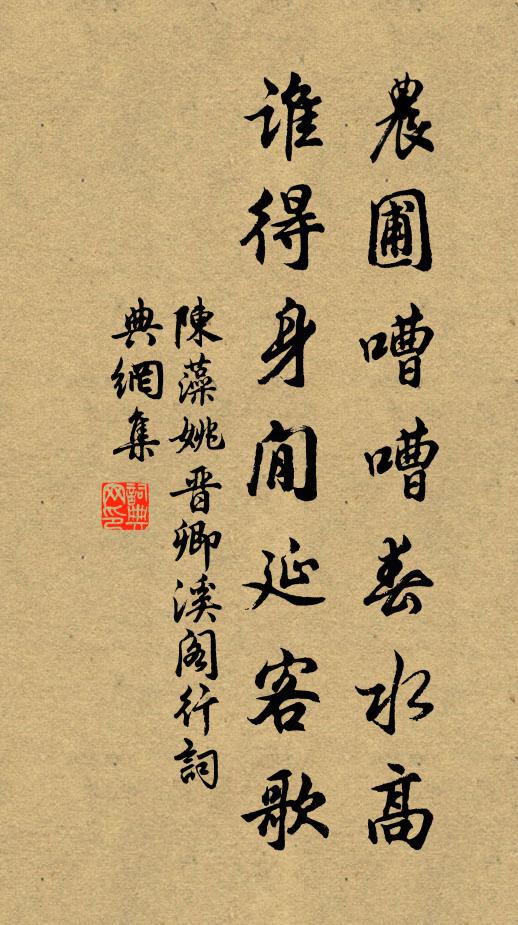 農圃嘈嘈春水高
誰得身閒延客歌
陳藻姚晋卿溪阁行詞
典網集
詞典网印